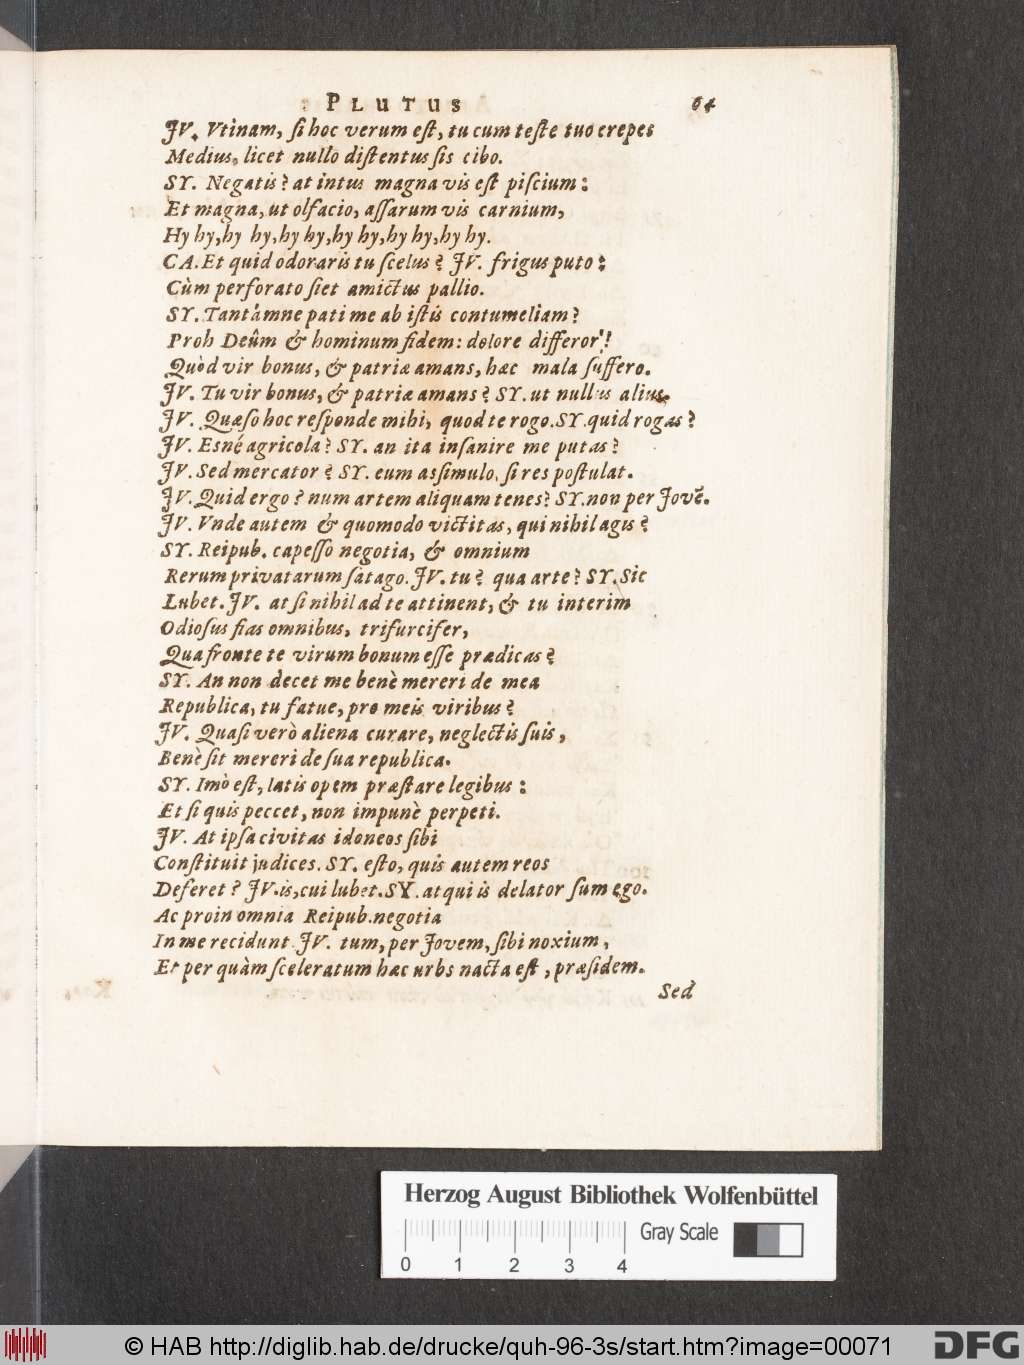 PLUTUS 64
JV. Vtinam, si hoc verum est, tu cum teste tuo crepes
Medius, licet nullo distentus sis cibo.
SY. Negatis? at intus magna vis est piscium:
Et magna, ut olfacio, assarum vis carnium,
Hy hy, hy hy, hy hy, hy hy, hy hy, hy hy.
CA. Et quid odoraris tu scelus? JV. frigus puto:
Cùm perforato siet amictus pallio.
SY. Tantámne pati me ab istis contumeliam?
Proh Deûm & hominum fidem: dolore differor!
Quòd vir bonus, & patriæ amans, hæc mala suffero.
JV. Tu vir bonus, & patriæ amans? SY. ut nullus alius.
JV. Quæso hoc responde mihi, quod te rogo. SY. quid rogas?
JV. Esné agricola? SY. an ita insanire me putas?
JV. Sed mercator? SY. eum assimulo, si res postulat.
JV. Quid ergo? num artem aliquam tenes? SY. non per Jovē.
JV. Vnde autem & quomodo victitas, qui nihil agis?
SY. Reipub. capesso negotia, & omnium
Rerum privatarum satago. JV. tu? qua arte? SY. Sic
Lubet. JV. at si nihil ad te attinent, & tu interim
Odiosus fias omnibus, trifurcifer,
Qua fronte te virum bonum esse prædicas?
SY. An non decet me benè mereri de mea
Republica, tu fatue, pro meis viribus?
JV. Quasi verò aliena curare, neglectis suis,
Benè sit mereri de sua republica.
SY. Imò est, latis opem præstare legibus:
Et si quis peccet, non impunè perpeti.
JV. At ipsa civitas idoneos sibi
Constituit judices. SY. esto, quis autem reos
Deferet? JV. is, cui lubet. SY. atqui is delator sum ego.
Ac proin omnia Reipub. negotia
In me recidunt. JV. tum, per Jovem, sibi noxium,
Et per quàm sceleratum hæc urbs nacta est, præsidem.
Sed
Herzog August Bibliothek Wolfenbüttel
Gray Scale
0 1 2 3 4
© HAB http://diglib.hab.de/drucke/quh-96-3s/start.htm?image=00071
DFG